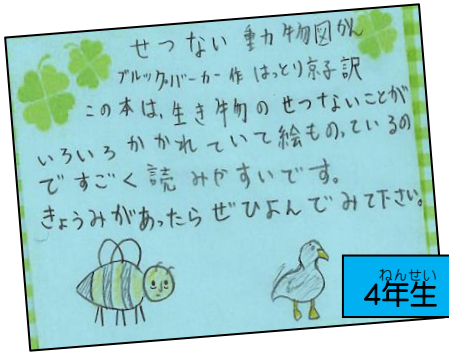 せつない動物図かん
ブルック・バーカー作 はっとり京子訳
この本は、生き物のせつないことが
いろいろかかれていて絵ものっているの
ですごく読みやすいです。
きょうみがあったらぜひよんでみて下さい。
ねんせい
4年生